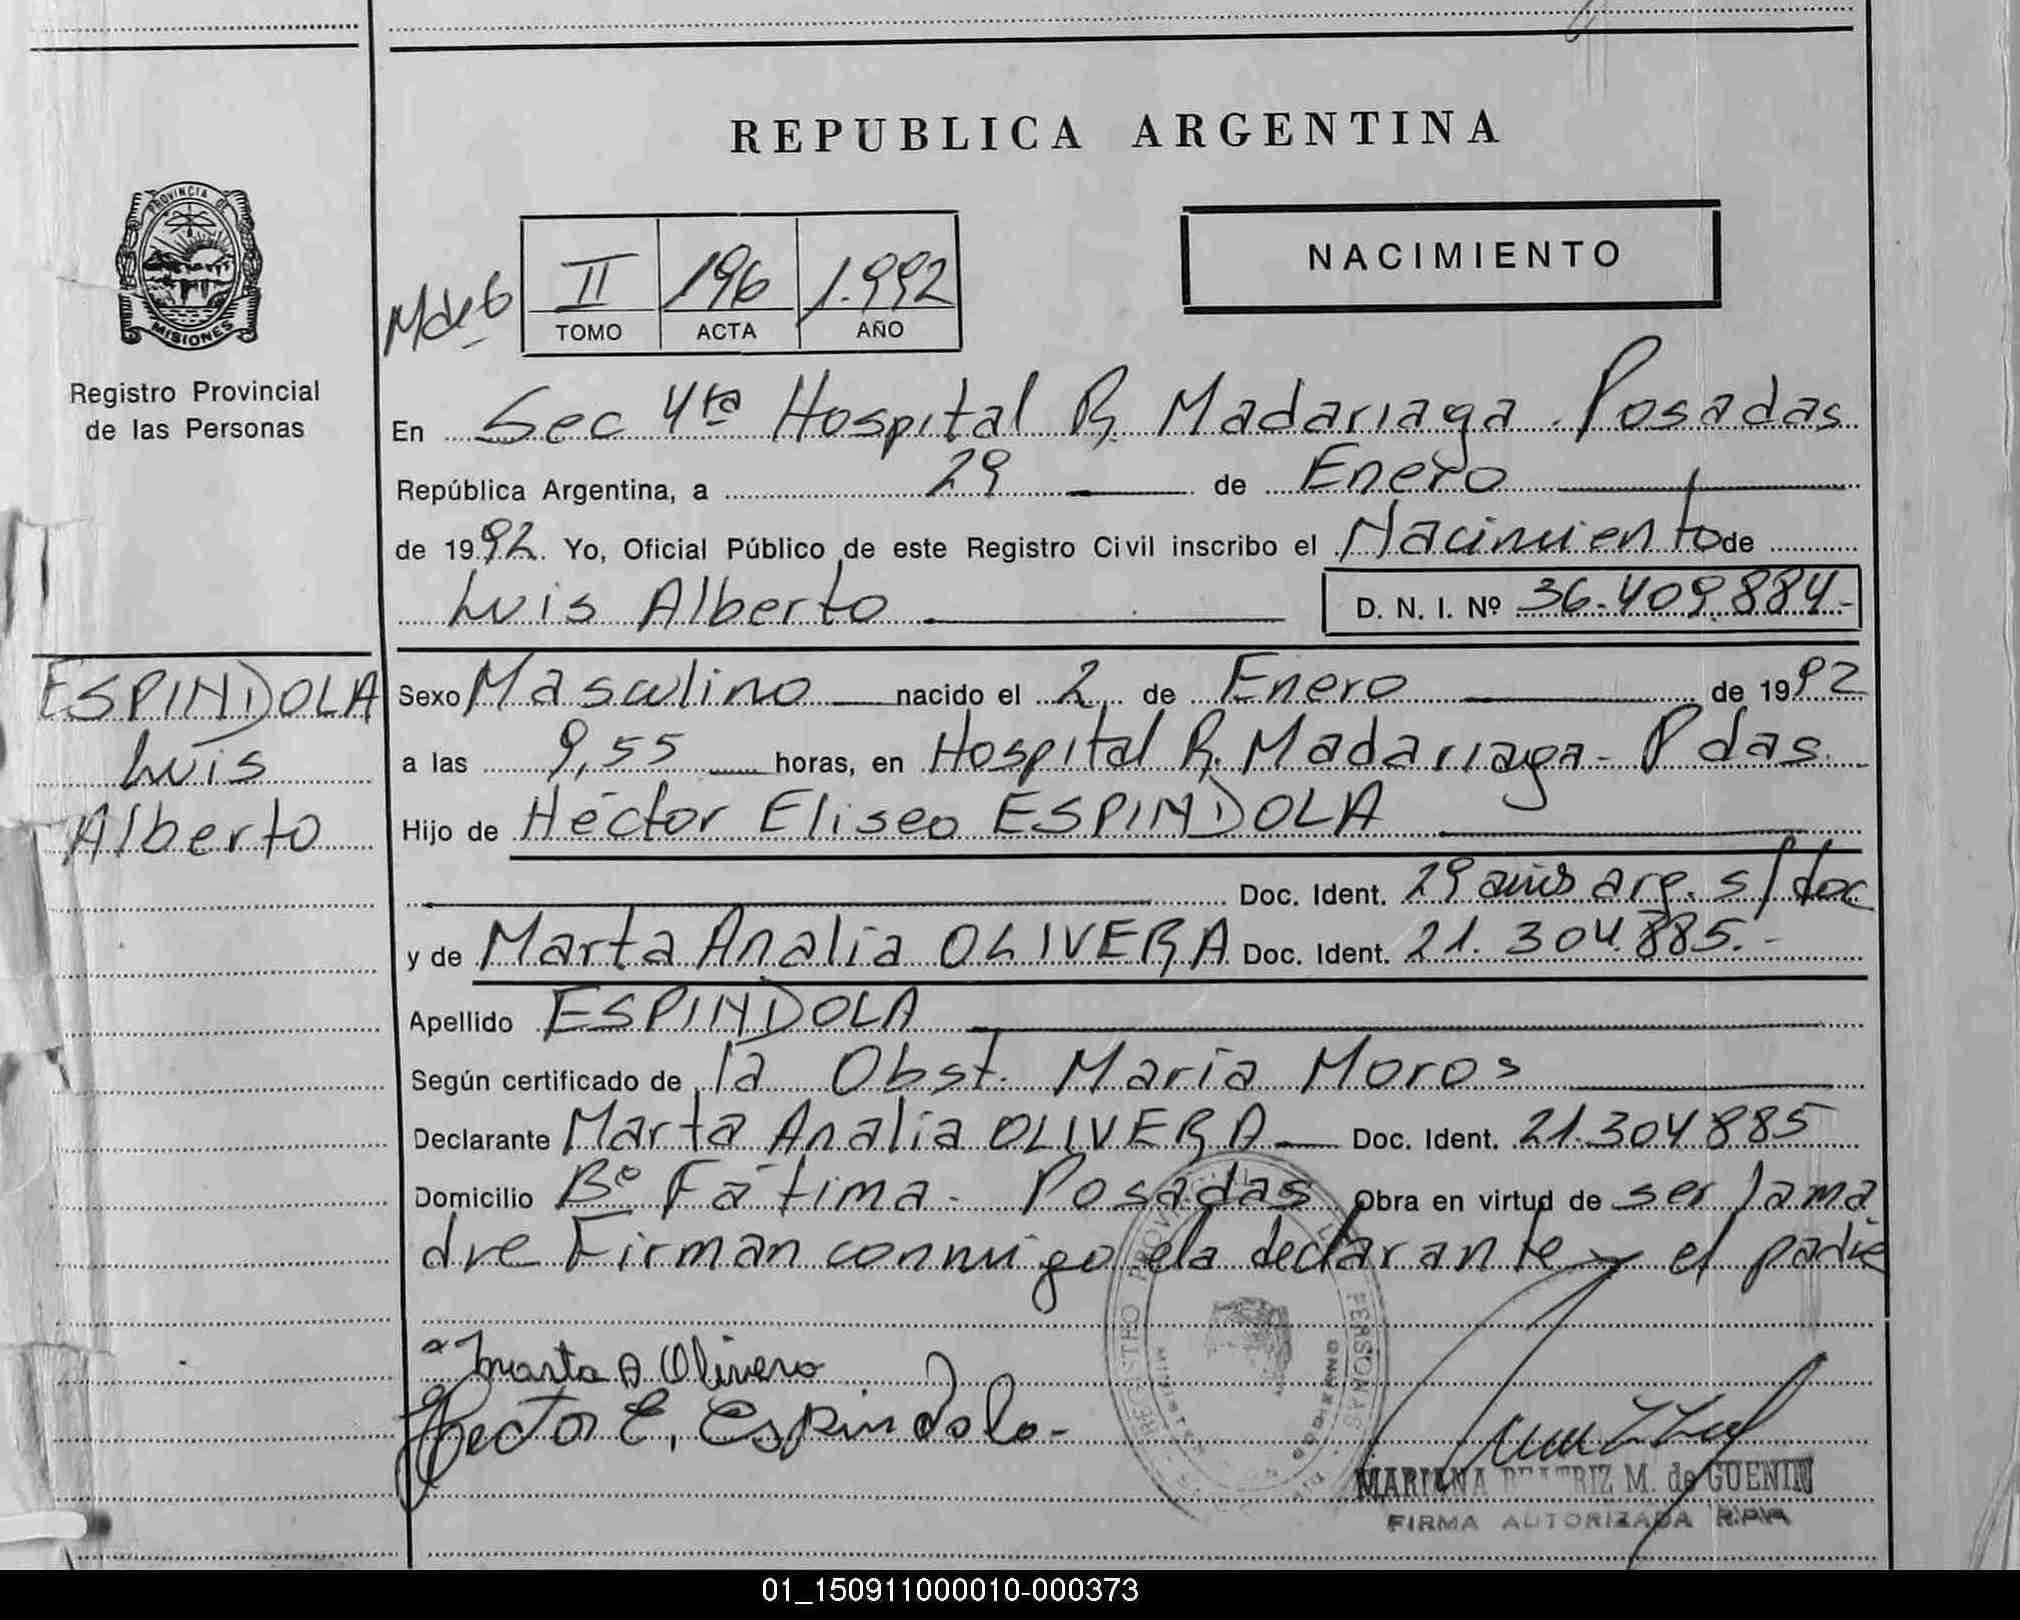 REPUBLICA ARGENTINA
PROVINCIA DE
MISIONES
Registro Provincial
de las Personas
NACIMIENTO
II 196 1.992
TOMO ACTA AÑO
En Sec 4ta Hospital R. Madariaga. Posadas
República Argentina, a 29 de Enero
de 1992. Yo, Oficial Público de este Registro Civil inscribo el Nacimiento de
Luis Alberto D. N. I. Nº 36.409.884-
ESPINDOLA
Luis
Alberto
Sexo Masculino nacido el 2 de Enero de 1992
a las 9,55 horas, en Hospital R. Madariaga - Pdas.
Hijo de Héctor Eliseo ESPINDOLA
Doc. Ident. 29 años arg. s/doc
y de Marta Analia OLIVERA Doc. Ident. 21.304.885.-
Apellido ESPINDOLA
Según certificado de la Obst. María Moros
Declarante Marta Analia OLIVERA Doc. Ident. 21.304885
Domicilio Bº Fátima - Posadas Obra en virtud de ser la ma
dre Firman conmigo la declarante y el padre
Marta A Olivero
Hector E. Espindola-
MARIANA BEATRIZ M. de GUENIN
FIRMA AUTORIZADA R.P.P.
01_150911000010-000373